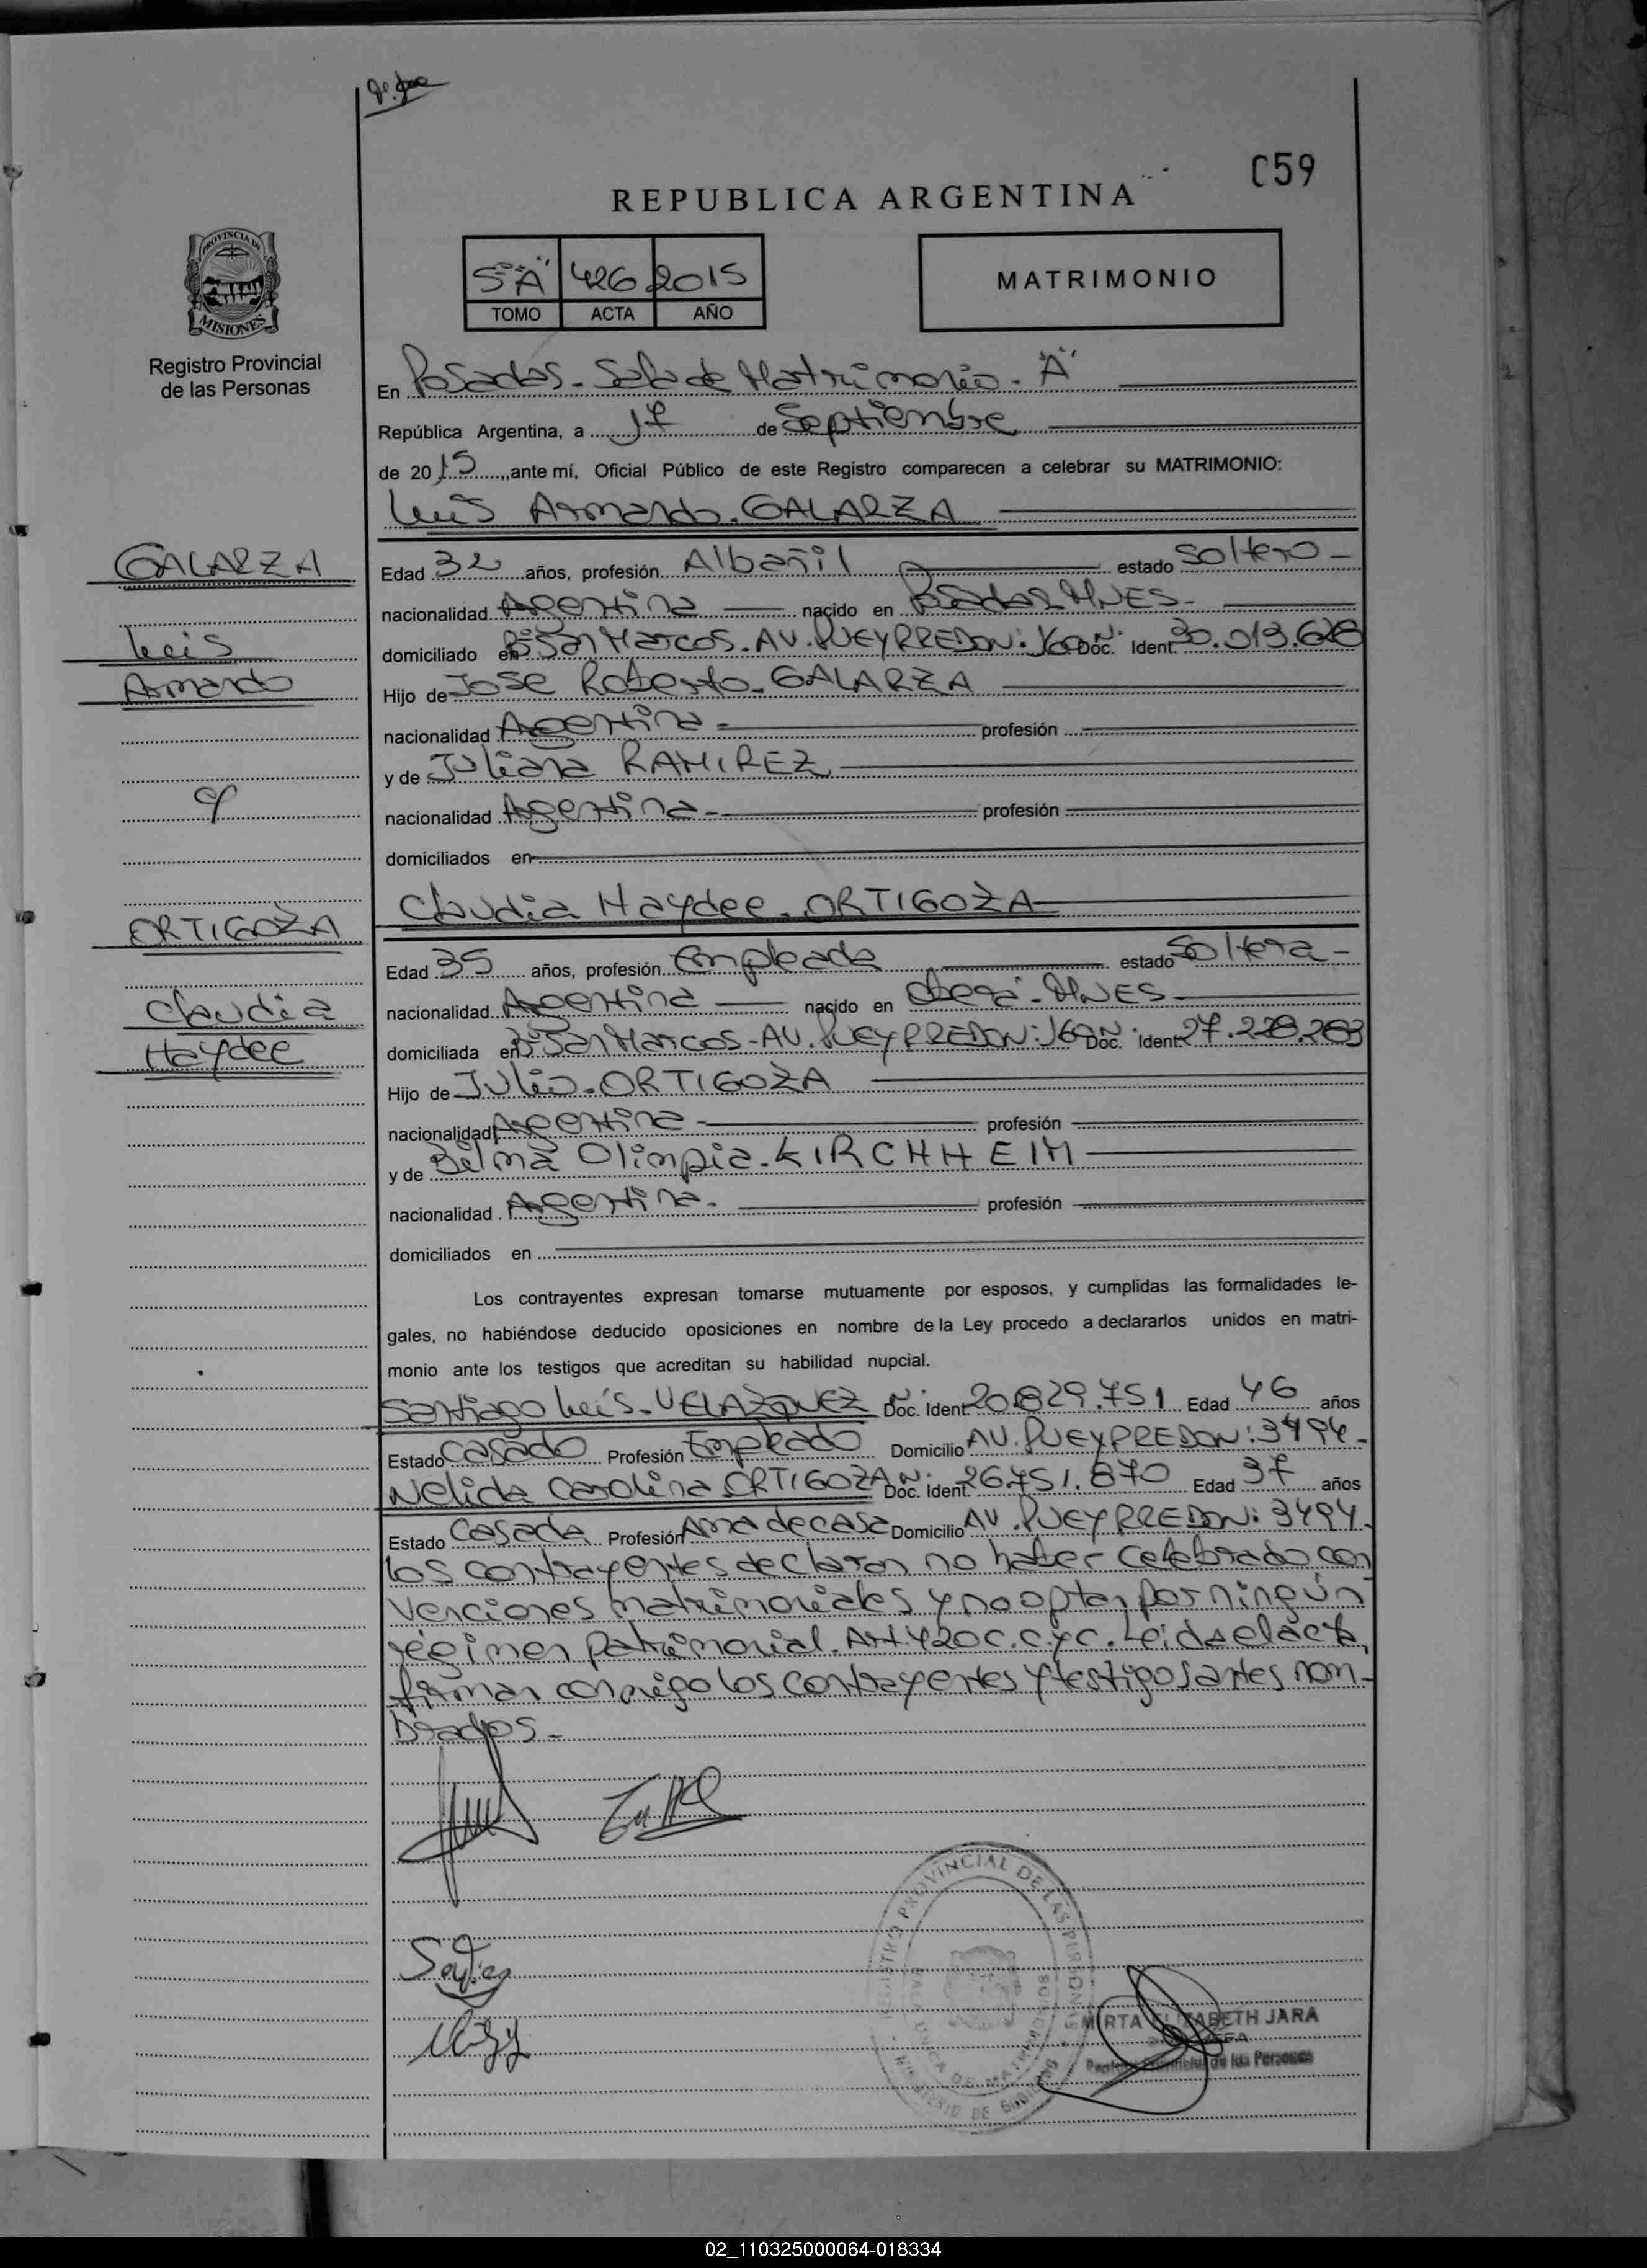 C59
REPUBLICA ARGENTINA
5º "A" 426 2015
TOMO ACTA AÑO
MATRIMONIO
PROVINCIA DE
MISIONES
Registro Provincial
de las Personas
En Posadas - Sala de Matrimonio - "A"
República Argentina, a 17 de Septiembre
de 2015, ante mí, Oficial Público de este Registro comparecen a celebrar su MATRIMONIO:
Luis Armando. GALARZA
GALARZA
Luis
Armando
Edad 32 años, profesión Albañil estado Soltero -
nacionalidad Argentina nacido en Posadas. MNES -
domiciliado en Bº San Marcos - AV. PUEYRREDON: Doc. Ident. 30.013.628
Hijo de Jose Roberto - GALARZA
nacionalidad Argentina - profesión
y de Juliana RAMIREZ
nacionalidad Argentina - profesión
domiciliados en
Claudia Haydee. ORTIGOZA
ORTIGOZA
Claudia
Haydee
Edad 35 años, profesión Empleada estado Soltera -
nacionalidad Argentina nacido en Oberá - MNES -
domiciliada en Bº San Marcos - AV. PUEYRREDON: Doc. Ident. 27.228.283
Hijo de Julio. ORTIGOZA
nacionalidad Argentina - profesión
y de Bilma Olimpia - KIRCHHEIM
nacionalidad Argentina. profesión
domiciliados en
Los contrayentes expresan tomarse mutuamente por esposos, y cumplidas las formalidades le-
gales, no habiéndose deducido oposiciones en nombre de la Ley procedo a declararlos unidos en matri-
monio ante los testigos que acreditan su habilidad nupcial.
Santiago Luis - VELAZQUEZ Doc. Ident. 20.829.751 Edad 46 años
Estado Casado Profesión Empleado Domicilio AV. PUEYRREDON: 3494 -
Nelida Carolina ORTIGOZA Doc. Ident. 26.751.870 Edad 37 años
Estado Casada Profesión Ama de casa Domicilio AV. PUEYRREDON: 3494.
los contrayentes declaran no haber celebrado con
venciones matrimoniales y no optan por ningún
régimen patrimonial. Art. 420 C.C.yC. Leida el acta,
firman conmigo los contrayentes y testigos antes nom-
brados -
REGISTRO PROVINCIAL DE LAS PERSONAS
MINISTERIO DE GOBIERNO
MIRTA ELIZABETH JARA
JEFA
Registro Provincial de las Personas
02_110325000064-018334